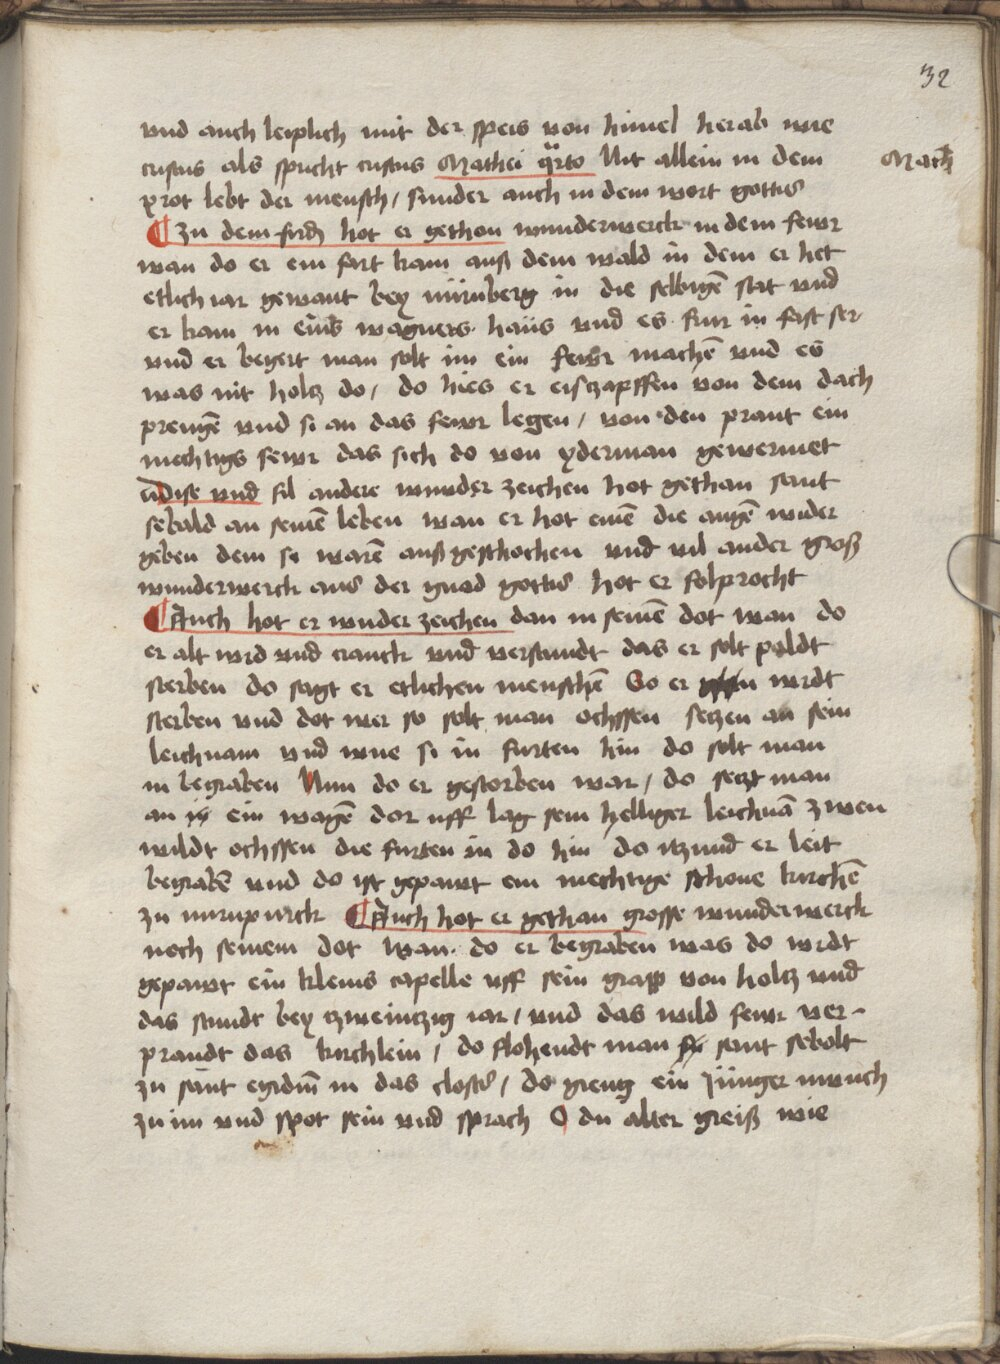 32
vnd auch leiplich mit der speis von himel herab wie
cristus als spricht cristus Mathei qrto Nit allein in dem
Math
prot lebt der mensch / sunder auch in dem wort gottis
¶ zu dem fird hot er gethon wunderwerck in dem fewr
wan do er ein fart kam auß dem wald in dem er het
etlich iar gewant bey nürnberg in die selbigē stat vnd
er kam in eins wagners haüs vnd es frur in fast ser
vnd er begert man solt im ein fewr machē vnd es
was nit holtz do / do hies er eisczapffen von dem dach
prengē vnd si an das fewr legen / von den prant ein
mechtigs fewr das sich do von yderman gewermet
dise vnd fil andere wunder zeichen hot gethan sant
sebald an seinē leben wan er hot einē die augē wider
geben dem si warē außgesthochen vnd vil ander groß
wunderwerck aus der gnad gottis hot er folprocht
¶ Auch hot er wnder zeichen dan in seinē dot wan do
er alt wrd vnd cranck vnd verstandt das er solt paldt
sterben do sagt er etlichen menschē So er wirdt
sterben vnd dot wer so solt man ochssen seczen an sein
leichnam vnd wue si in furten hin do solt man
in begraben Nun do er gestorben war / do seczt man
an ein wagē dor uff lag sein helliger leichnā zwen
wildt ochssen die furten in do hin do itzund er leit
begrabē vnd do ist gepawt ein mechtige schone kirchē
zu nurnpurck ¶ Auch hot er gethan grosse wunderwerck
noch seinem dot wan do er begraben was do wrdt
gepawt ein kleins capelle uff sein grap von holtz vnd
das stundt bey czweinczig iar / vnd das wild fewr ver-
prandt das kirchlein / do flohendt man sant sebolt
zu sant egidiū in das closter / do gieng ein jünger munch
zu im vnd spot sein vnd sprach O du alter greiß wie